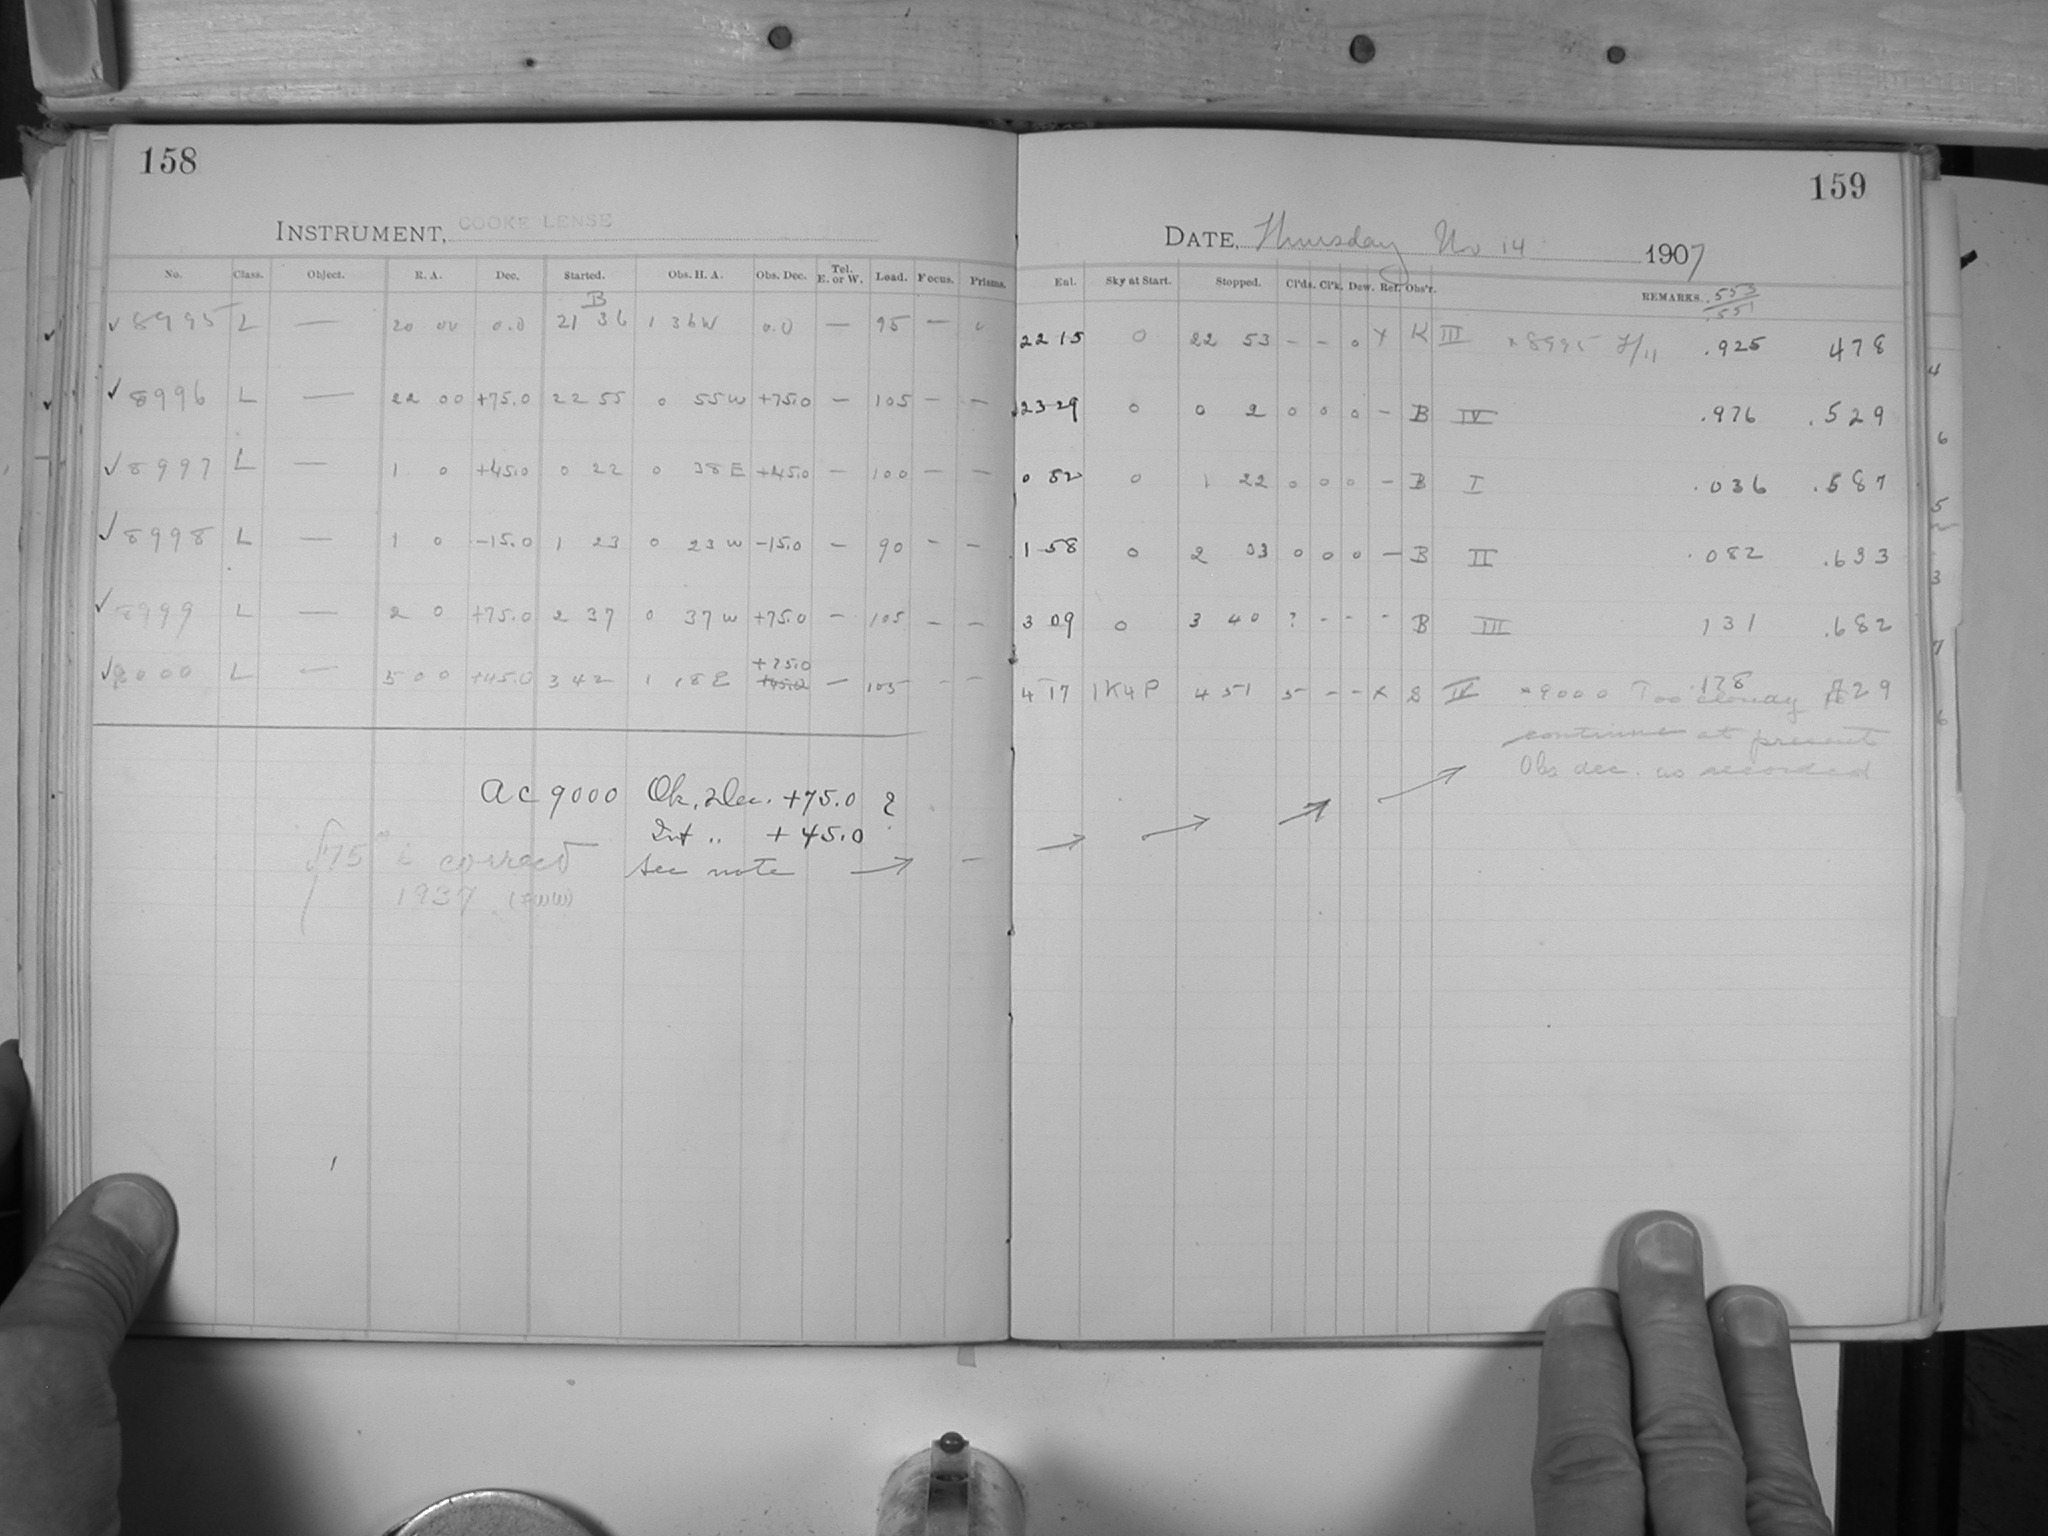 158
INSTRUMENT, COOKE LENSE
No. Class. Object. R. A. Dec. Started. Obs. H. A. Obs. Dec. Tel. E. or W. Load. Focus. Prisms.
B
✓ 8995 L — 20 00 0.0 21 36 1 36W 0.0 — 95 —
✓ 8996 L — 22 00 +75.0 22 55 0 55W +75.0 — 105 — —
✓ 8997 L — 1 0 +45.0 0 22 0 38E +45.0 — 100 — —
✓ 8998 L — 1 0 -15.0 1 23 0 23W -15.0 — 90 — —
✓ 8999 L — 2 0 +75.0 2 37 0 37W +75.0 — 105 — —
+75.0
✓ 9000 L — 5 00 +45.0 3 42 1 18E +45.0 — 105 — —
ac 9000 Ob. Dec. +75.0 ?
Int " +45.0
see note → —
+75° is correct
1937
159
DATE, Thursday Nov 14 1907
Enl. Sky at Start. Stopped. Cl'ds. Cl'k. Dew. Ref. Obs'r. REMARKS. .553
.551
22 15 0 22 53 — — 0 X K III x8995 .925 478
23 29 0 0 2 0 0 0 — B IV .976 .529
0 52 0 1 22 0 0 0 — B I .036 .587
1 58 0 2 03 0 0 0 — B II .082 .633
3 09 0 3 40 ? - - - B III 131 .682
4 17 1K4P 4 51 5 - - X B IV x9000 Too cloudy to .178 729
continue at present
Obs dec. as recorded